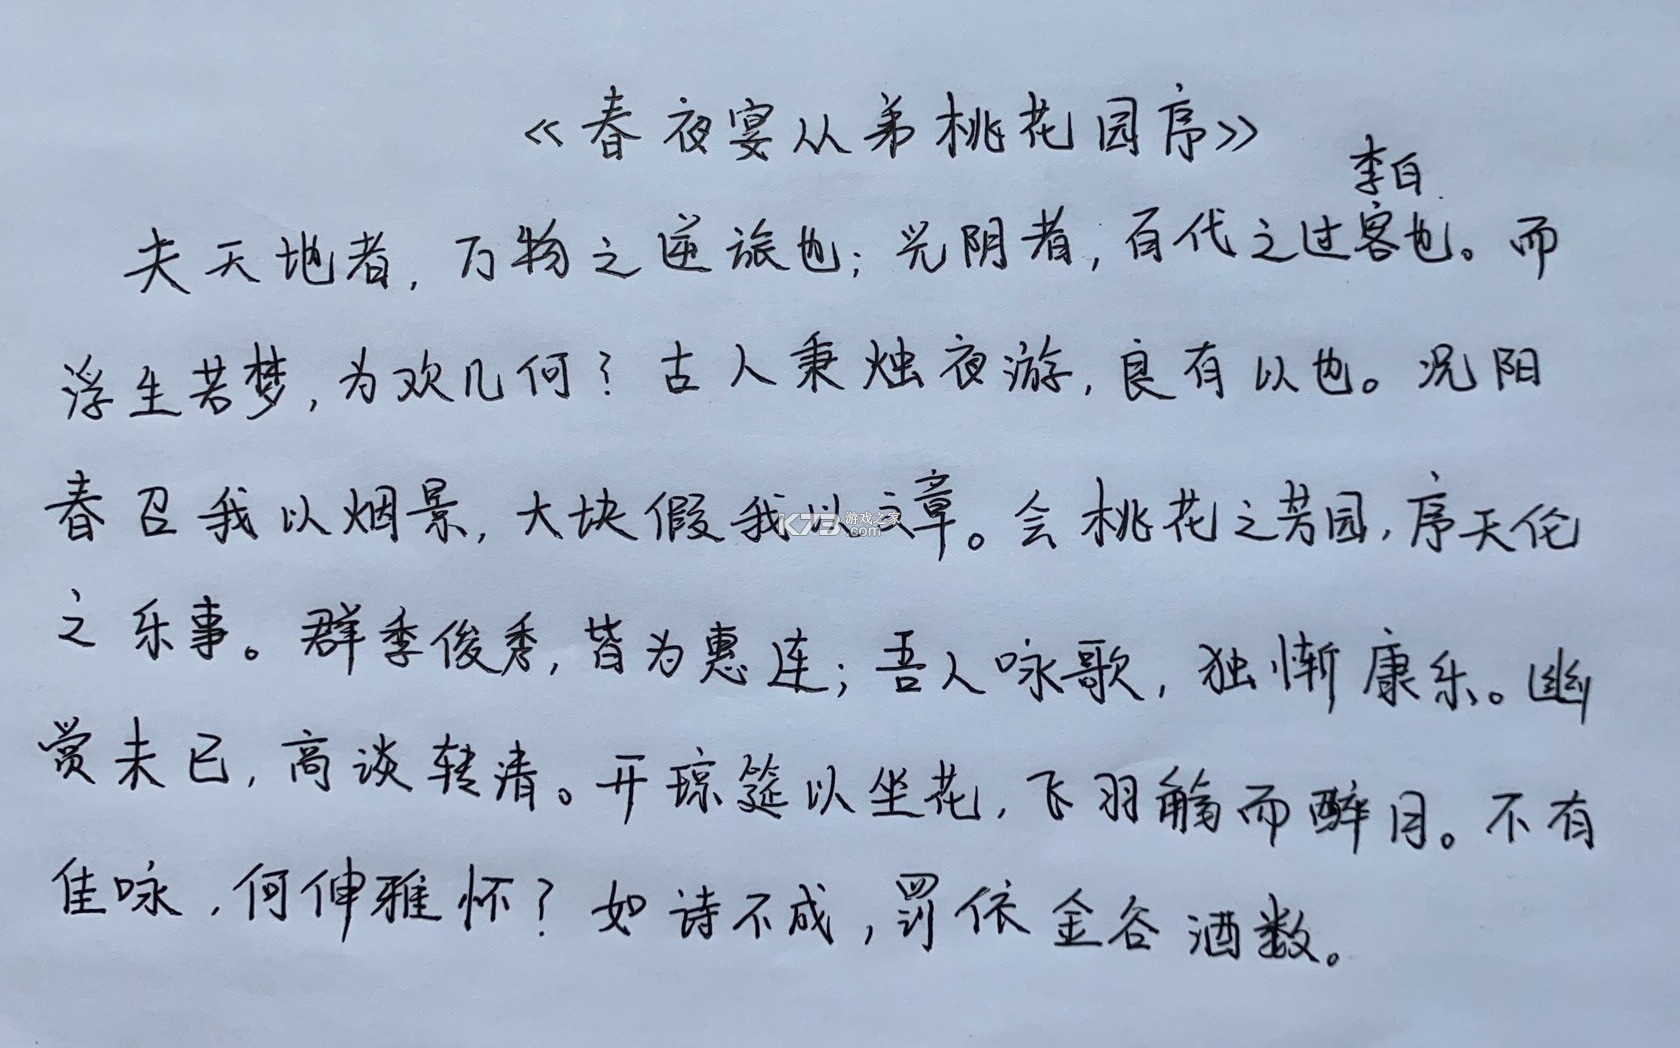 《春夜宴从弟桃花园序》
李白
夫天地者，万物之逆旅也；光阴者，百代之过客也。而
浮生若梦，为欢几何？古人秉烛夜游，良有以也。况阳
春召我以烟景，大块假我以文章。会桃花之芳园，序天伦
之乐事。群季俊秀，皆为惠连；吾人咏歌，独惭康乐。幽
赏未已，高谈转清。开琼筵以坐花，飞羽觞而醉月。不有
佳咏，何伸雅怀？如诗不成，罚依金谷酒数。
K73 游戏之家
.com